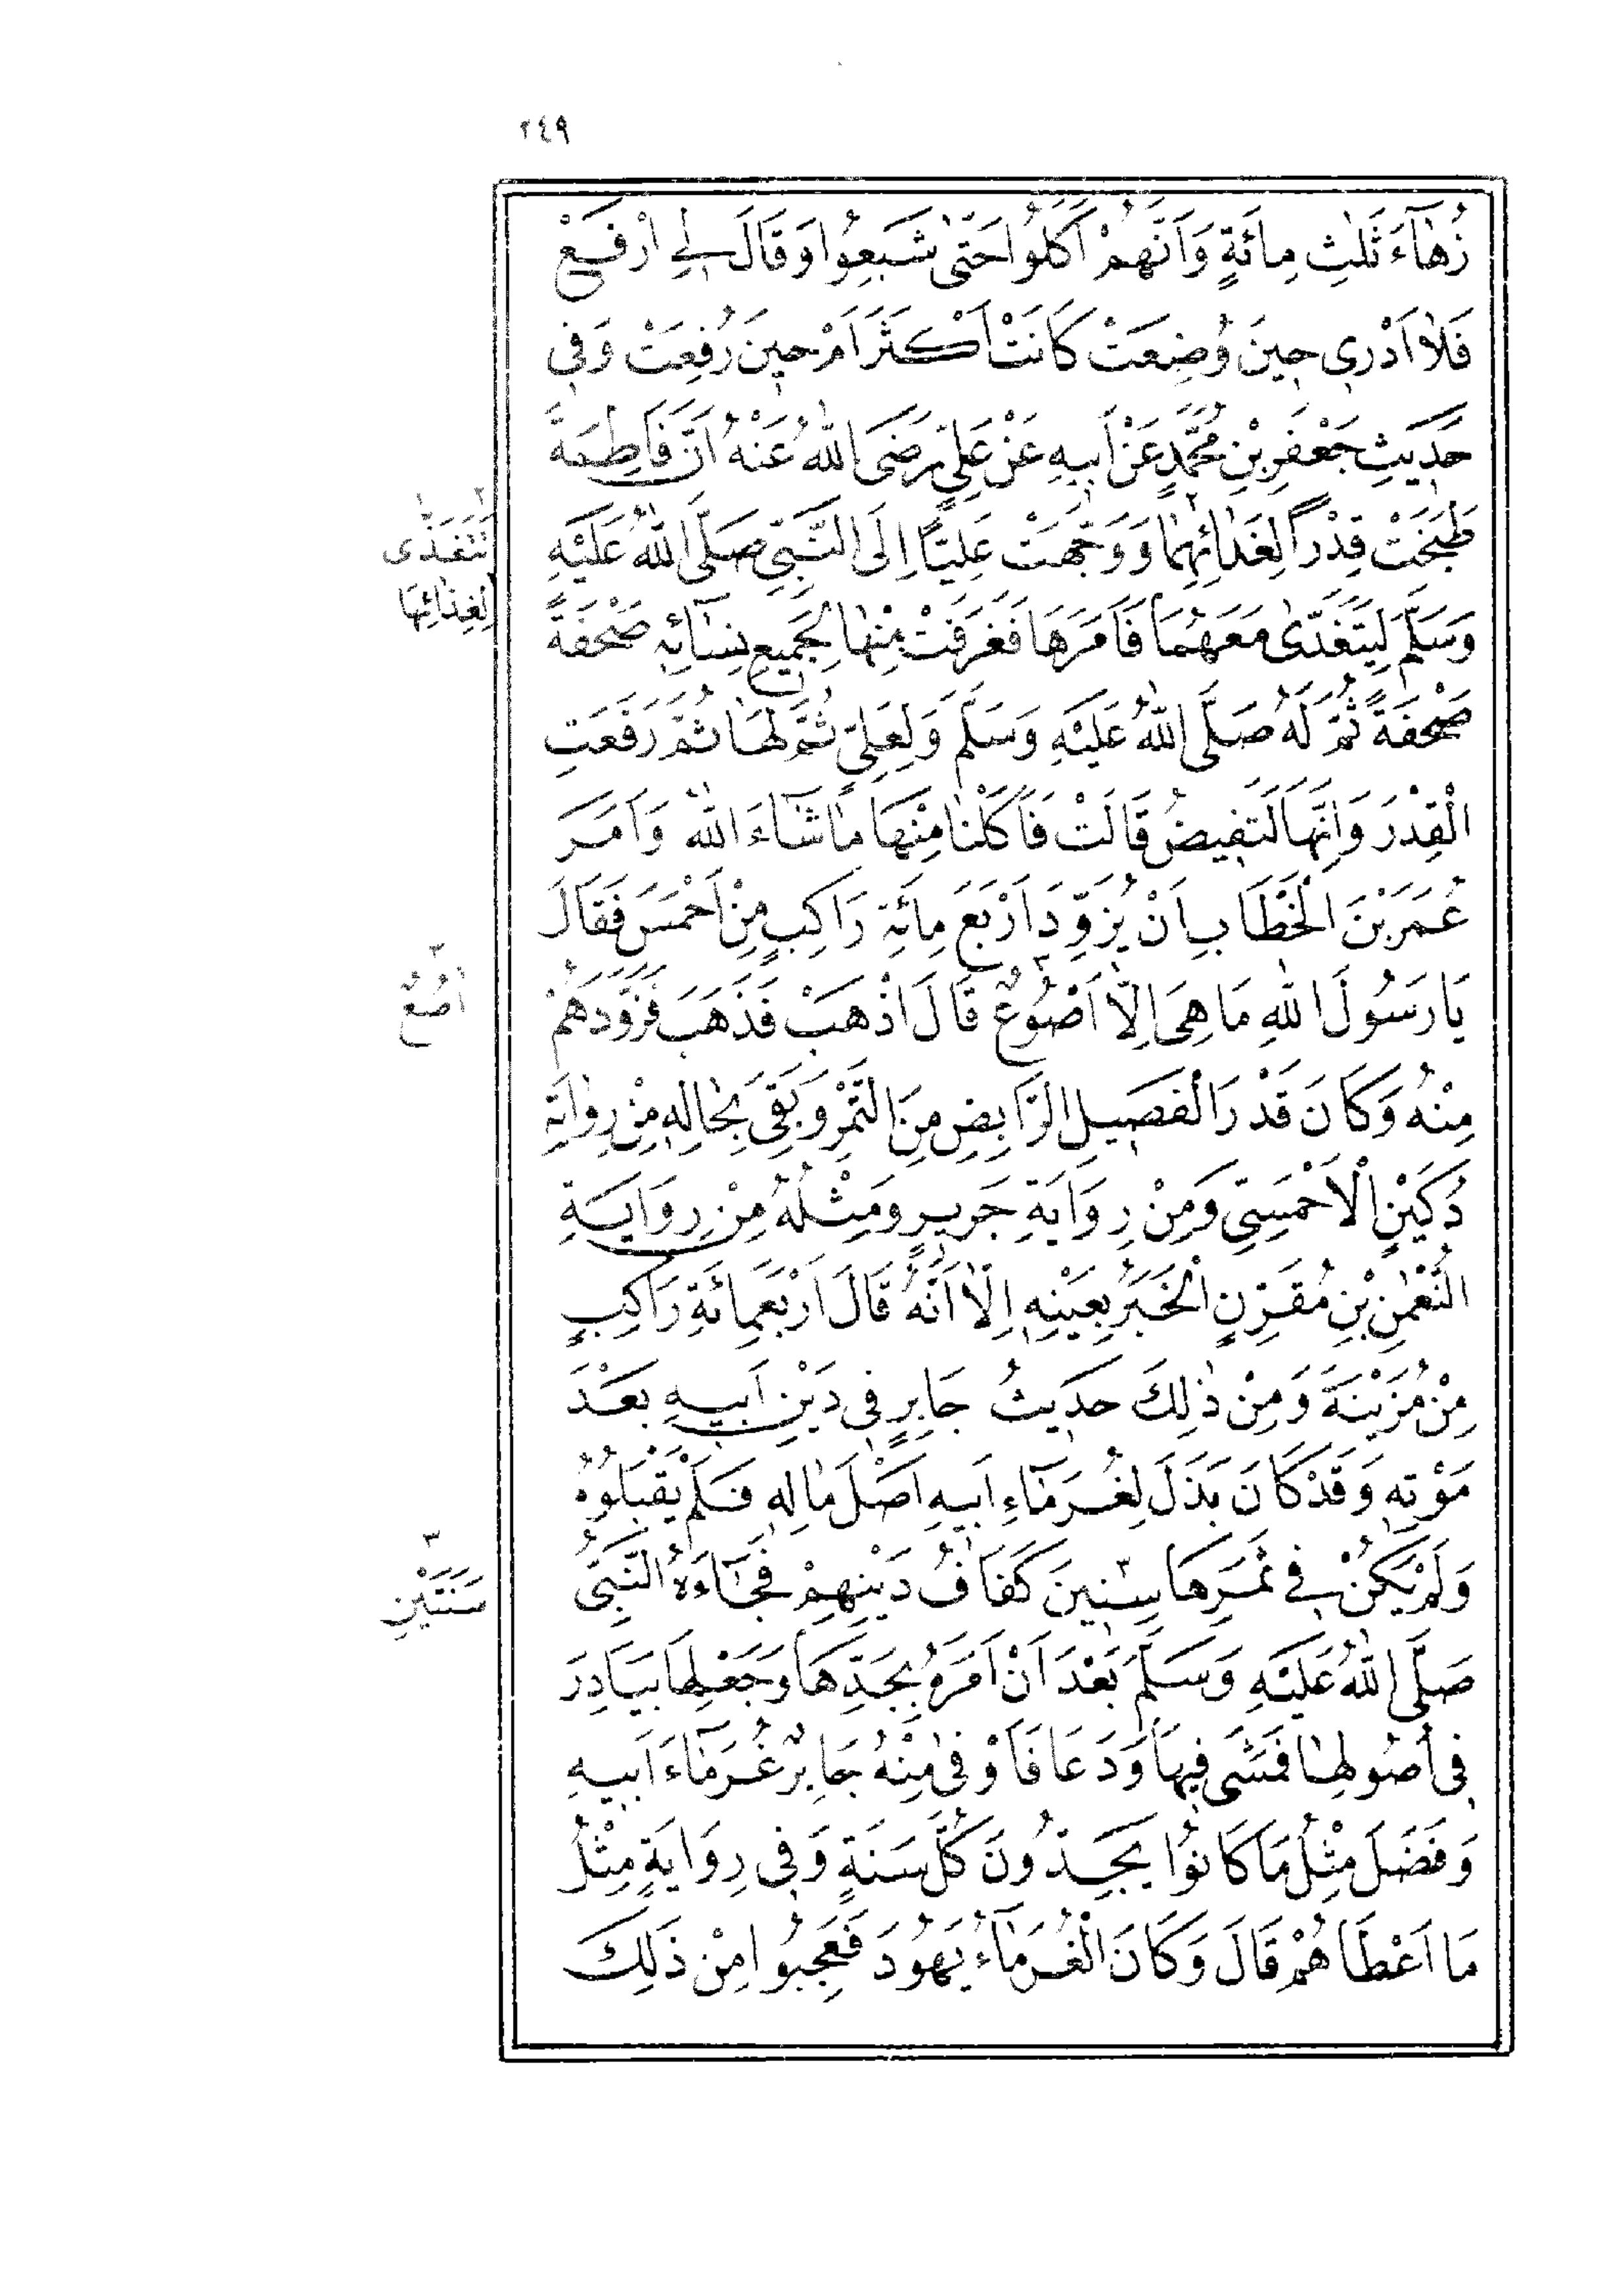 ٢٤٩
زُهَآءَ ثَلٰثِ مِائَةٍ وَاَنَّهُمْ اَكَلُوا حَتّٰى شَبِعُوا وَقَالَ لِي ارْفَعْ
فَلَا اَدْرِى حِينَ وُضِعَتْ كَانَتْ اَكْثَرَ اَمْ حِينَ رُفِعَتْ وَفِى
حَدِيثِ جَعْفَرِ بْنِ مُحَمَّدٍ عَنْ اَبِيهِ عَنْ عَلِىٍّ رَضَىَ اللّٰهُ عَنْهُ اَنَّ فَاطِمَةَ
طَبَخَتْ قِدْرًا لِغَدَائِهِمَا وَوَجَّهَتْ عَلِيًّا اِلَى النَّبِىِّ صَلَّى اللّٰهُ عَلَيْهِ
وَسَلَّمَ لِيَتَغَدّٰى مَعَهُمَا فَاَمَرَهَا فَغَرَفَتْ مِنْهَا لِجَمِيعِ نِسَآئِهِ صَحْفَةً
صَحْفَةً ثُمَّ لَهُ صَلَّى اللّٰهُ عَلَيْهِ وَسَلَّمَ وَلِعَلِىٍّ ثُمَّ لَهَا ثُمَّ رَفَعَتِ
الْقِدْرَ وَاِنَّهَا لَتَفِيضُ قَالَتْ فَاَكَلْنَا مِنْهَا مَا شَآءَ اللّٰهُ وَاَمَرَ
عُمَرَ بْنَ الْخَطَّابِ اَنْ يُزَوِّدَ اَرْبَعَ مِائَةِ رَاكِبٍ مِنْ اَحْمَسَ فَقَالَ
يَا رَسُولَ اللّٰهِ مَا هِىَ اِلَّا اَصْوُعٌ قَالَ اذْهَبْ فَذَهَبَ فَزَوَّدَهُمْ
مِنْهُ وَكَانَ قَدْرَ الْفَصِيلِ الرَّابِضِ مِنَ التَّمْرِ وَبَقِىَ بِحَالِهِ مِنْ رِوَايَةِ
دُكَيْنٍ الْاَحْمَسِىِّ وَمِنْ رِوَايَةِ جَرِيرٍ وَمِثْلُهُ مِنْ رِوَايَةِ
النُّعْمٰنِ بْنِ مُقَرِّنٍ الْخَبَرُ بِعَيْنِهِ اِلَّا اَنَّهُ قَالَ اَرْبَعِمِائَةِ رَاكِبٍ
مِنْ مُزَيْنَةَ وَمِنْ ذٰلِكَ حَدِيثُ جَابِرٍ فِى دَيْنِ اَبِيهِ بَعْدَ
مَوْتِهِ وَقَدْ كَانَ بَذَلَ لِغُرَمَآءِ اَبِيهِ اَصْلَ مَالِهِ فَلَمْ يَقْبَلُوهُ
وَلَمْ يَكُنْ فِي ثَمَرِهَا سِنِينَ كَفَافُ دَيْنِهِمْ فَجَآءَهُ النَّبِىُّ
صَلَّى اللّٰهُ عَلَيْهِ وَسَلَّمَ بَعْدَ اَنْ اَمَرَهُ بِجَدِّهَا وَجَعْلِهَا بَيَادِرَ
فِى اُصُولِهَا فَمَشَى فِيهَا وَدَعَا فَاَوْفَى مِنْهُ جَابِرٌ غُرَمَآءَ اَبِيهِ
وَفَضَلَ مِثْلُ مَا كَانُوا يَجِدُّونَ كُلَّ سَنَةٍ وَفِى رِوَايَةٍ مِثْلُ
مَا اَعْطَاهُمْ قَالَ وَكَانَ الْغُرَمَآءُ يَهُودَ فَعَجِبُوا مِنْ ذَلِكَ
لِغِذَائِهَا
٣
اٰصُعٌ
٣
سَنَتَيْنِ